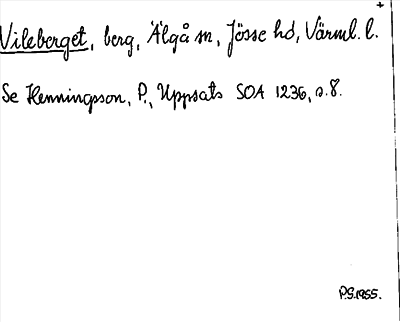 Vileberget, berg, Älgå sn, Jösse hd, Värml. l.
Se Henningsson, P., Uppsats SOA 1236, s. 8.
P.S. 1955.